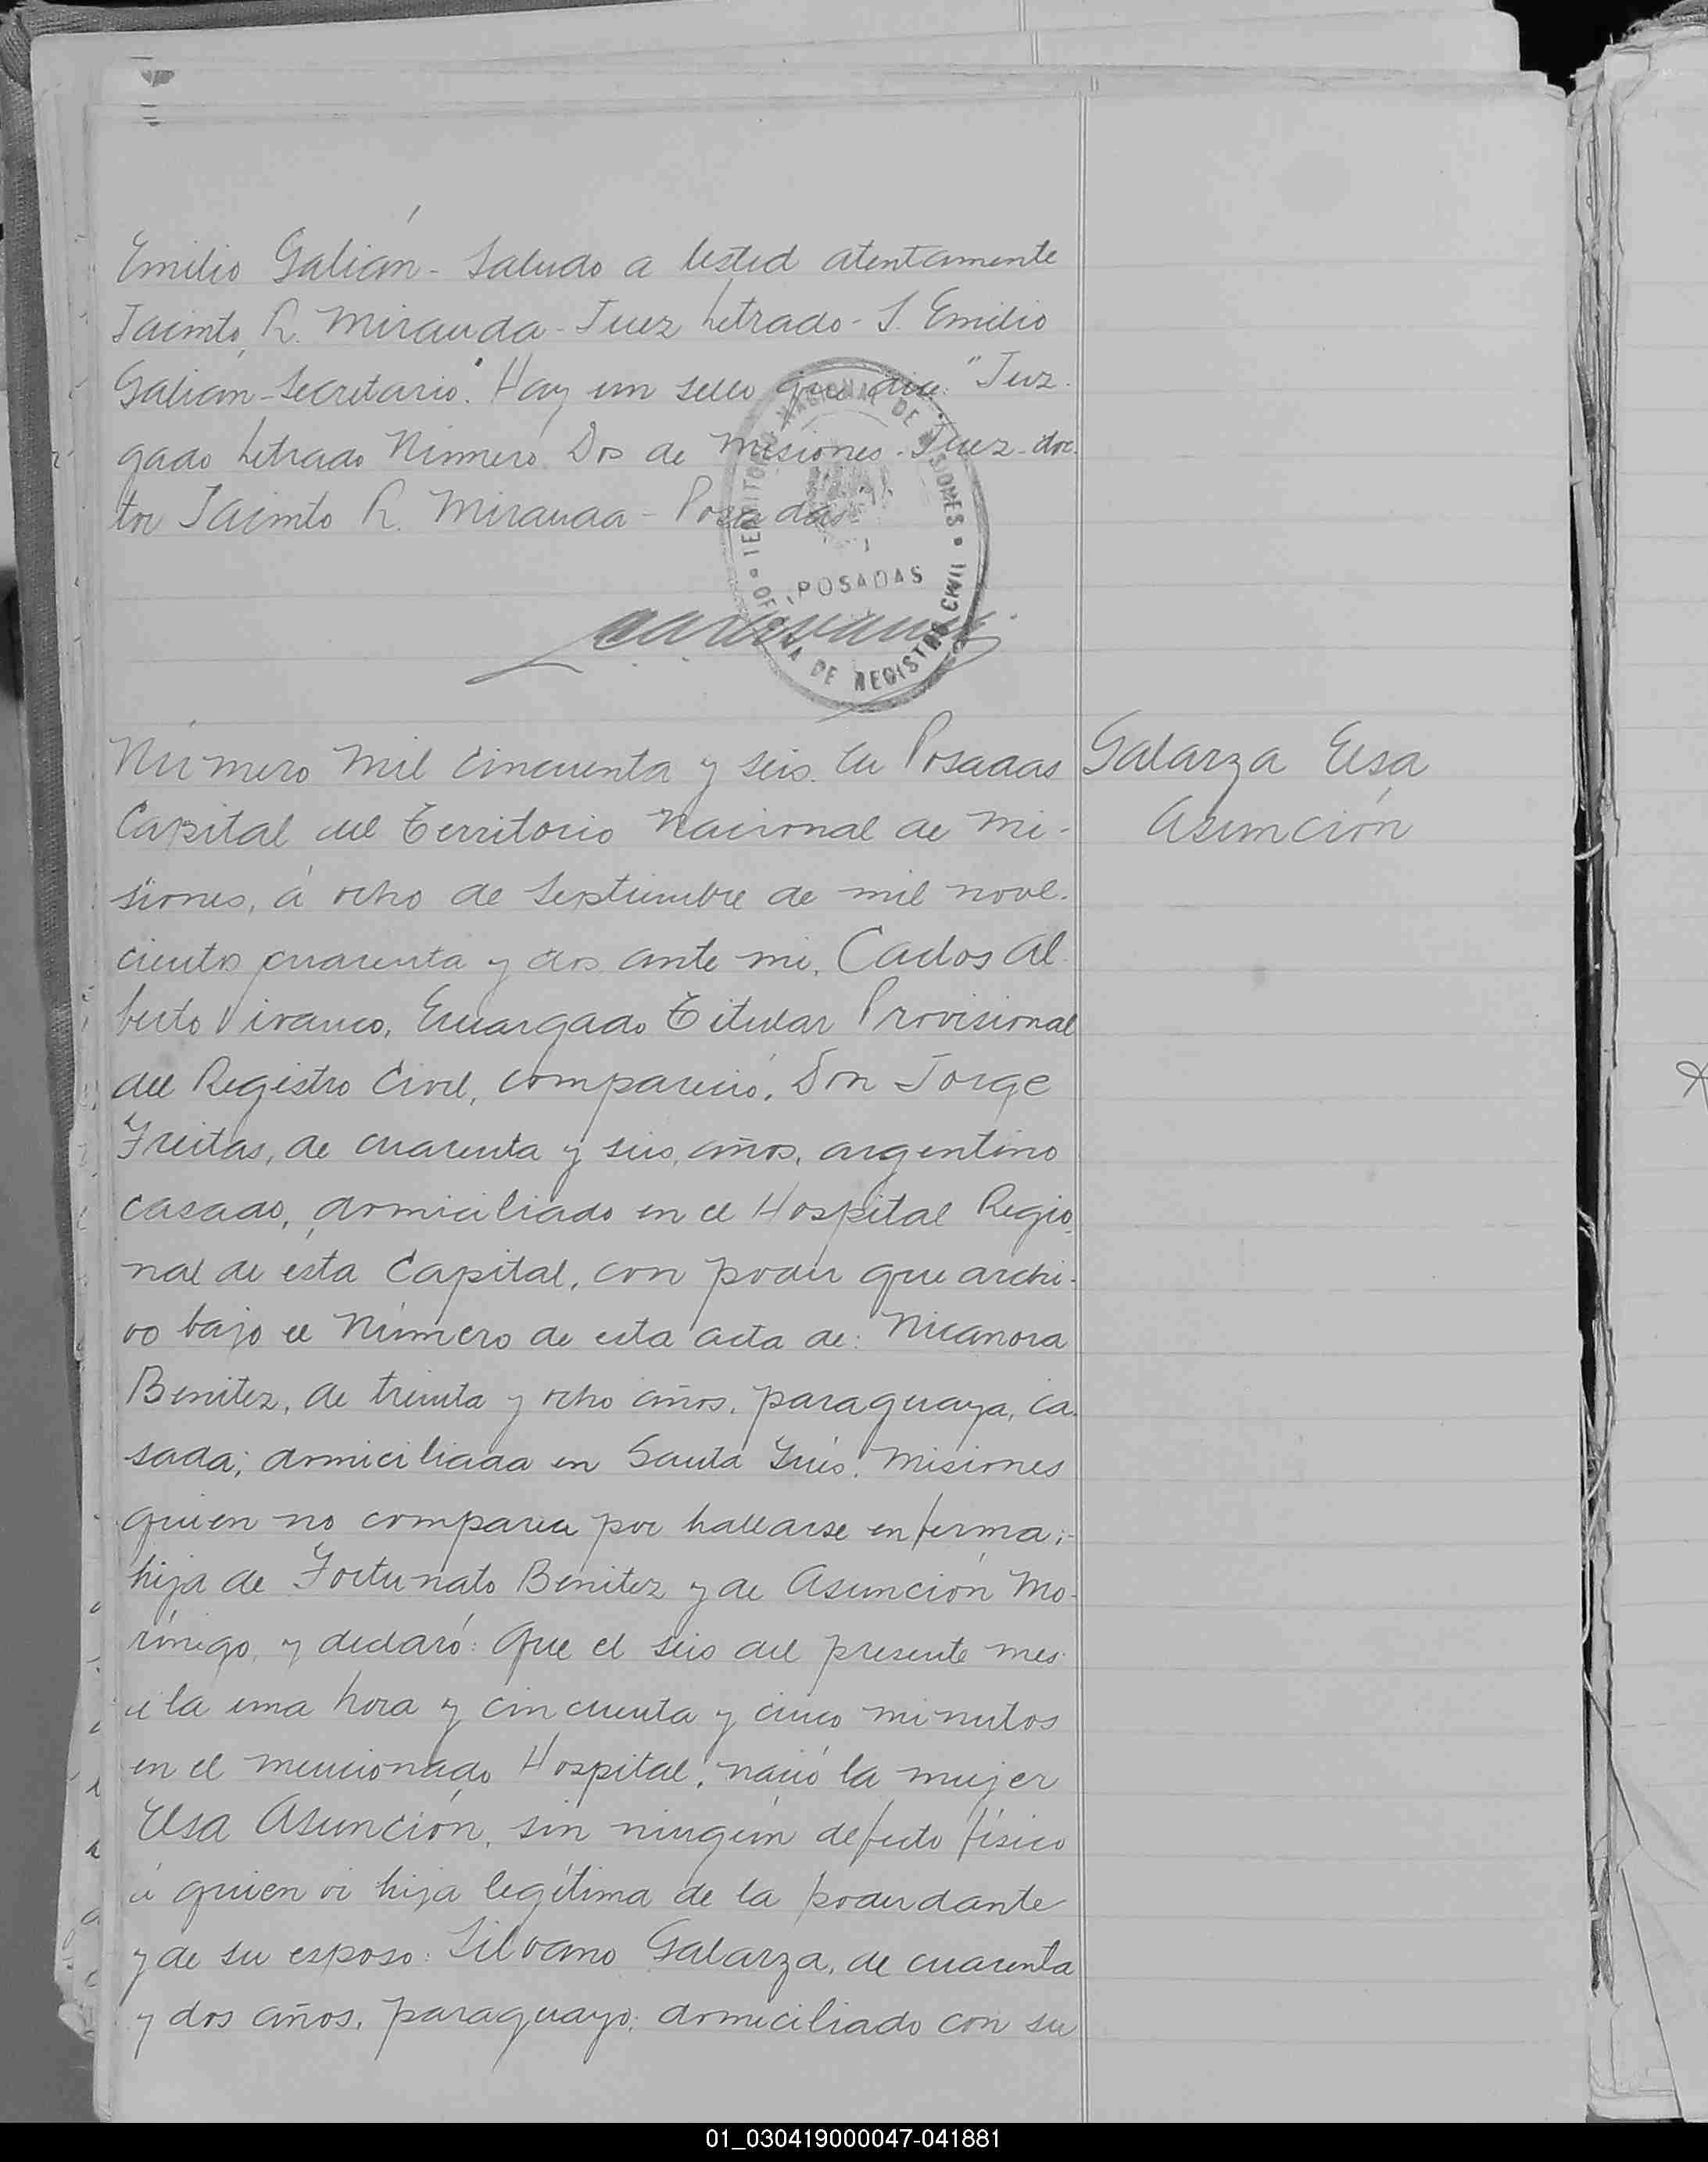 Emilio Galián - Saludo a Usted atentamente
Jacinto R. Miranda - Juez Letrado - S. Emilio
Galián - Secretario". Hay un sello que dice: "Juz-
gado Letrado Número Dos de Misiones - Juez - doc-
tor Jacinto R. Miranda - Posadas"
TERRITORIO NACIONAL DE MISIONES
POSADAS
OFICINA DE REGISTRO CIVIL
Número mil cincuenta y seis. En Posadas
Galarza Elsa
Capital del Territorio Nacional de Mi-
Asunción
siones, á ocho de Septiembre de mil nove-
cientos cuarenta y dos ante mi, Carlos Al-
berto Vivanco, Encargado Titular Provisional
del Registro Civil, compareció, Don Jorge
Freitas, de cuarenta y seis, años, argentino
casado, domiciliado en el Hospital Regio-
nal de ésta Capital, con poder que archi-
vo bajo el Número de esta acta de: Nicanora
Benitez, de treinta y ocho años, paraguaya, ca-
sada; domiciliada en Santa Inés, Misiones
quien no comparece por hallarse enferma;-
hija de Fortunato Benitez y de Asunción Mo-
rínigo, y declaró: Que el seis del presente mes
á la una hora y cincuenta y cinco minutos
en el mencionado Hospital, nació la mujer
Elsa Asunción, sin ningún defecto físico
á quien ví hija legítima de la poderdante
y de su esposo: Silvano Galarza, de cuarenta
y dos años, paraguayo, domiciliado con su
01_030419000047-041881